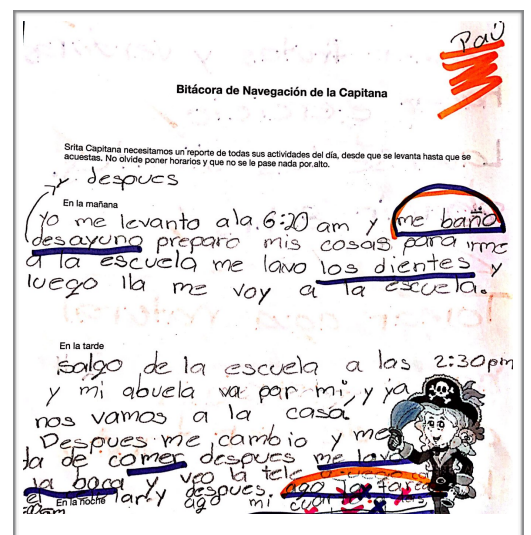 Paú
Bitácora de Navegación de la Capitana
Srita Capitana necesitamos un reporte de todas sus actividades del día, desde que se levanta hasta que se
acuestas. No olvide poner horarios y que no se le pase nada por alto.
y despues
En la mañana
yo me levanto ala 6:20 am y me baño
desayuno preparo mis cosas para irme
a la escuela me lavo los dientes y
luego lla me voy a la escuela.
En la tarde
salgo de la escuela a las 2:30pm
y mi abuela va por mi, y ya
nos vamos a la casa.
Despues me cambio y me
da de comer despues me lavo
la boca y veo la tele
despues. ago la tarea
En la noche
ago mi